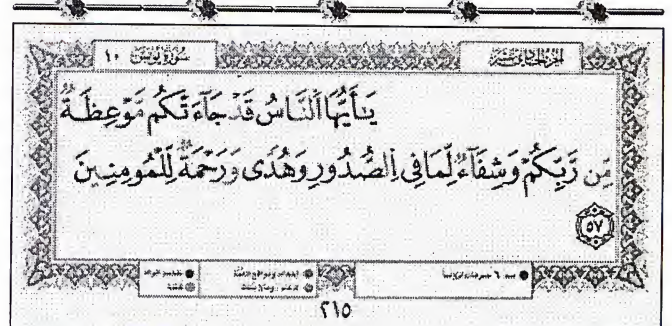 الجزء الحادي عشر
سُورَةُ يُونُسَ ١٠
يَٰٓأَيُّهَا ٱلنَّاسُ قَدْ جَآءَتْكُم مَّوْعِظَةٌ
مِّن رَّبِّكُمْ وَشِفَآءٌ لِّمَا فِى ٱلصُّدُورِ وَهُدًى وَرَحْمَةٌ لِّلْمُؤْمِنِينَ
٥٧
٢١٥